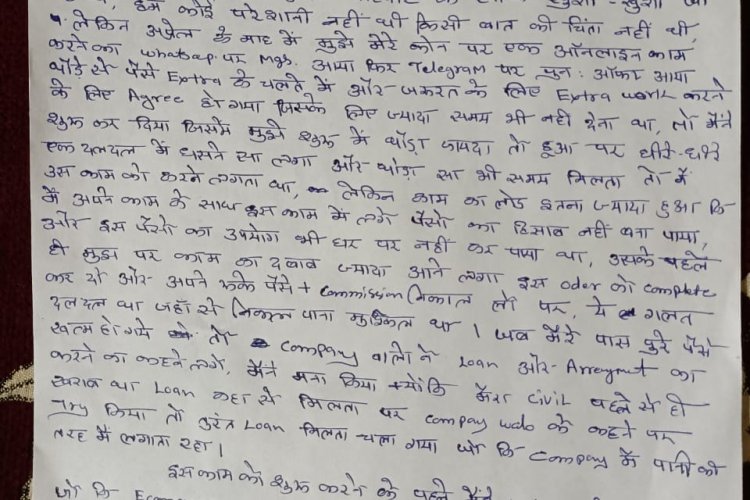 हमें कोई परेशानी नहीं थी किसी बात की चिंता नहीं थी,
लेकिन अप्रेल के माह में मुझे मेरे फोन पर एक ऑनलाइन काम
करने का whatsap पर Msg. आया फिर Telegram पर पुन: ऑफर आया
थोड़े से पैसे Extra के चलते में और जरूरत के लिए Extra work करने
के लिए Agree हो गया जिसके लिए ज्यादा समय भी नहीं देना था, तो मैंने
शुरू कर दिया जिसमें मुझे शुरू में थोड़ा फायदा तो हुआ पर धीरे-धीरे
एक दलदल में धसने सा लगा और थोड़ा सा भी समय मिलता तो में
उस काम को करने लगता था, लेकिन काम का लोड इतना ज्यादा हुआ कि
में अपने काम के साथ इस काम में लगे पैसों का हिसाब नहीं बना पाया,
और इस पैसों का उपयोग भी घर पर नहीं कर पाया था, उसके पहले
ही मुझ पर काम का दबाव ज्यादा आने लगा इस oder को complete
कर दो और अपने रुके पैसे + commission निकाल लो पर, ये गलत
दलदल था जहाँ से निकल पाना मुश्किल था । जब मेरे पास पुरे पैसे
खत्म हो गये तो company वालो ने Loan और Arreymut का
करने का कहने लगे, मैंने मना किया क्योंकि मेरा civil पहले से ही
खराब था Loan कहा से मिलता पर company walo के कहने पर
Try किया तो तुरंत Loan मिलता चला गया जो कि company में पानी की
तरह में लगाता रहा ।
इस काम को शुरू करने के पहले मैंने
जो कि